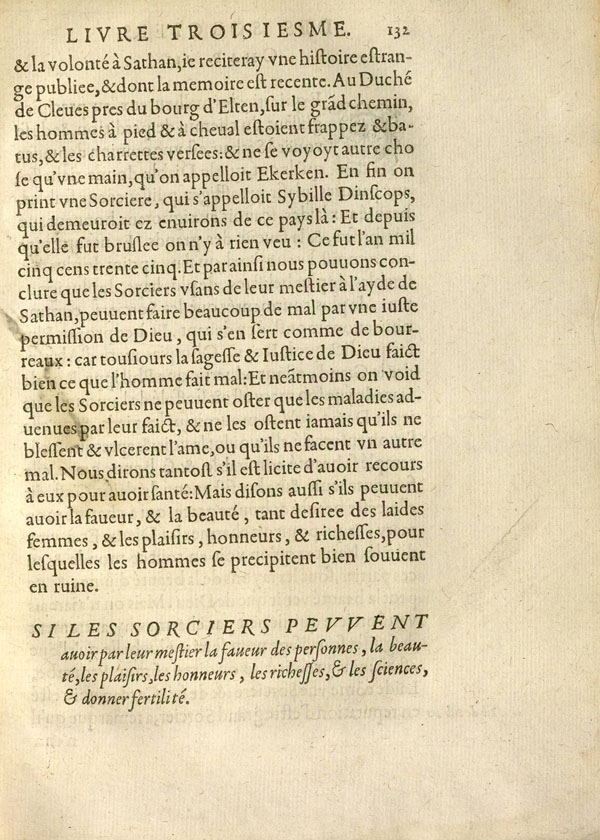 LIVRE TROISIESME. 132
& la volonté à Sathan, ie reciteray vne histoire estran-
ge publiee, & dont la memoire est recente. Au Duché
de Cleues pres du bourg d'Elten, sur le grãd chemin,
les hommes à pied & à cheual estoient frappez & ba-
tus, & les charrettes versees: & ne se voyoyt autre cho
se qu'vne main, qu'on appelloit Ekerken. En fin on
print vne Sorciere, qui s'appelloit Sybille Dinscops,
qui demeuroit ez enuirons de ce pays là: Et depuis
qu'elle fut bruslee on n'y à rien veu: Ce fut l'an mil
cinq cens trente cinq. Et par ainsi nous pouuons con-
clure que les Sorciers vsans de leur mestier à l'ayde de
Sathan, peuuent faire beaucoup de mal par vne iuste
permission de Dieu, qui s'en sert comme de bour-
reaux: car tousiours la sagesse & Iustice de Dieu faict
bien ce que l'homme fait mal: Et neãtmoins on void
que les Sorciers ne peuuent oster que les maladies ad-
uenues par leur faict, & ne les ostent iamais qu'ils ne
blessent & vlcerent l'ame, ou qu'ils ne facent vn autre
mal. Nous dirons tantost s'il est licite d'auoir recours
à eux pour auoir santé: Mais disons aussi s'ils peuuent
auoir la faueur, & la beauté, tant desiree des laides
femmes, & les plaisirs, honneurs, & richesses, pour
lesquelles les hommes se precipitent bien souuent
en ruine.
SI LES SORCIERS PEVVENT
auoir par leur mestier la faueur des personnes, la beau-
té, les plaisirs, les honneurs, les richesses, & les sciences,
& donner fertilité.